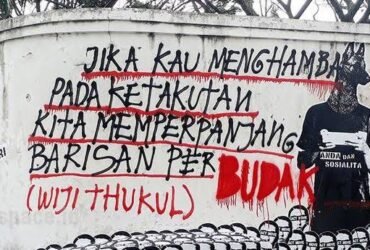 JIKA KAU MENGHAMBA
PADA KETAKUTAN
KITA MEMPERPANJANG
BARISAN PER BUDAK
(WIJI THUKUL)
ANDA DAN
SOSIALITA